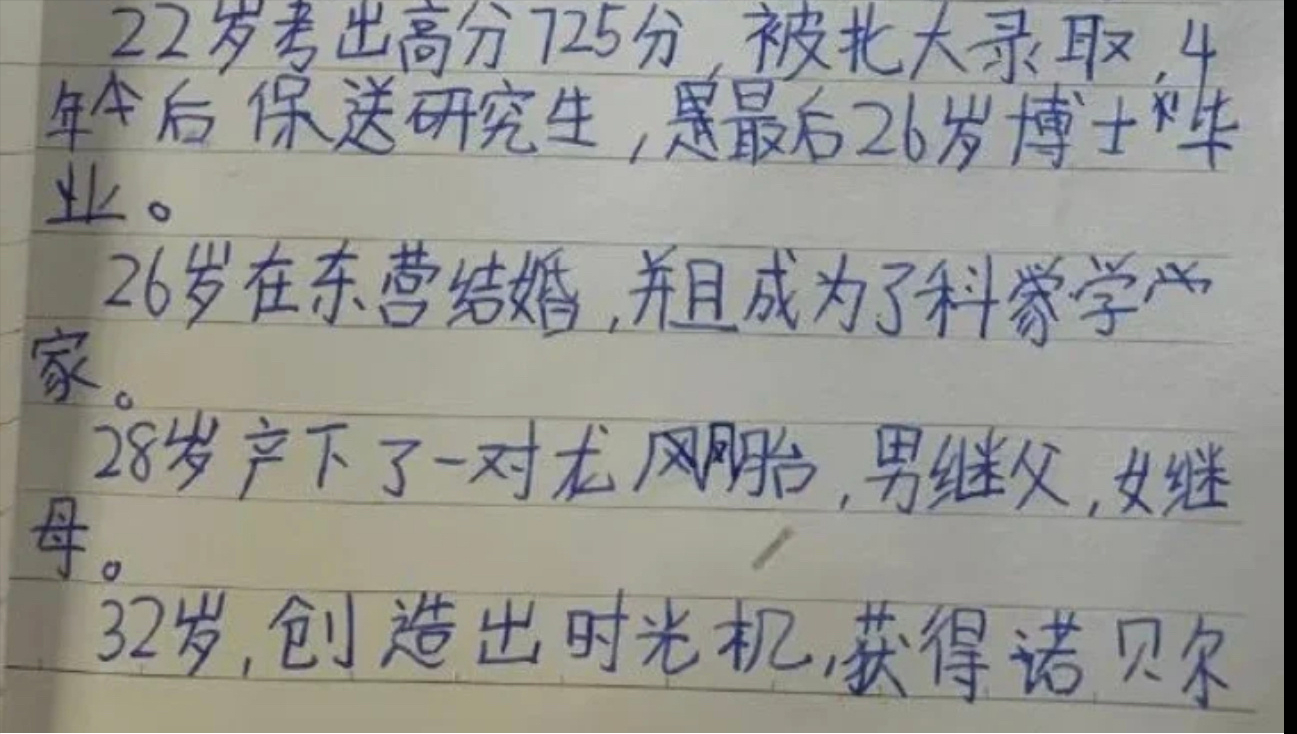 22岁考出高分725分,被北大录取,4
年后保送研究生,最后26岁博士毕
业。
26岁在东营结婚,并且成为了科学
家。
28岁产下了一对龙凤胎,男继父,女继
母。
32岁,创造出时光机,获得诺贝尔